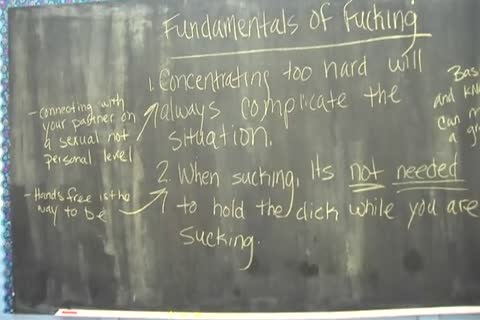 Fundamentals of Fucking
1. Concentrating too hard will
always complicate the
situation.
2. When sucking, Its not needed
to hold the dick while you are
sucking.
- Connecting with
your partner on
a sexual not
personal level
- Hands free is the
way to be
Bas
and kn
can m
a gr